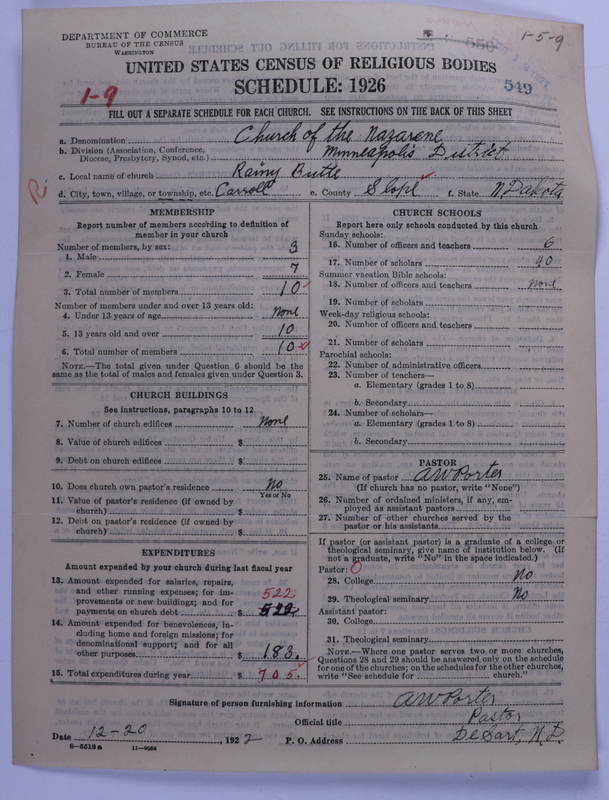 DEPARTMENT OF COMMERCE
BUREAU OF THE CENSUS
WASHINGTON
1-5-9
550
549
UNITED STATES CENSUS OF RELIGIOUS BODIES
SCHEDULE: 1926
1-9
FILL OUT A SEPARATE SCHEDULE FOR EACH CHURCH. SEE INSTRUCTIONS ON THE BACK OF THIS SHEET
a. Denomination Church of the Nazarene
b. Division (Association, Conference, Diocese, Presbytery, Synod, etc.) Minneapolis District
c. Local name of church Rainy Butte
d. City, town, village, or township, etc. Carroll e. County Slope f. State N Dakota
MEMBERSHIP
Report number of members according to definition of
member in your church
Number of members, by sex:
1. Male 3
2. Female 7
3. Total number of members 10
Number of members under and over 13 years old:
4. Under 13 years of age None
5. 13 years old and over 10
6. Total number of members 10
NOTE.—The total given under Question 6 should be
same as the total of males and females given under Question 3.
CHURCH BUILDINGS
See instructions, paragraphs 10 to 12
7. Number of church edifices None
8. Value of church edifices $
9. Debt on church edifices $
10. Does church own pastor's residence No
Yes or No
11. Value of pastor's residence (if owned by
church) $
12. Debt on pastor's residence (if owned by
church) $
EXPENDITURES
Amount expended by your church during last fiscal year
13. Amount expended for salaries, repairs,
and other running expenses; for im-
provements or new buildings; and for
payments on church debt $ 522
522
14. Amount expended for benevolences, in-
cluding home and foreign missions; for
denominational support; and for all
other purposes $ 183.
15. Total expenditures during year $ 705.
CHURCH SCHOOLS
Report here only schools conducted by this church
Sunday schools:
16. Number of officers and teachers 6
17. Number of scholars 40
Summer vacation Bible schools:
18. Number of officers and teachers None
19. Number of scholars
Week-day religious schools:
20. Number of officers and teachers
21. Number of scholars
Parochial schools:
22. Number of administrative officers
23. Number of teachers—
a. Elementary (grades 1 to 8)
b. Secondary
24. Number of scholars—
a. Elementary (grades 1 to 8)
b. Secondary
PASTOR
25. Name of pastor A W Porter
(If church has no pastor, write "None")
26. Number of ordained ministers, if any, em-
ployed as assistant pastors
27. Number of other churches served by the
pastor or his assistants
If pastor (or assistant pastor) is a graduate of a college or
theological seminary, give name of institution below. (If
not a graduate, write "No" in the space indicated.)
Pastor: 0
28. College No
29. Theological seminary No
Assistant pastor:
30. College
31. Theological seminary
NOTE.—Where one pastor serves two or more churches,
Questions 28 and 29 should be answered only on the schedule
for one of the churches; on the schedules for the other churches,
write "See schedule for church."
Signature of person furnishing information A W Porter
Official title Pastor
Date 12-20, 1922 P. O. Address DeSart, N.D.
8-5518 a 11-9034